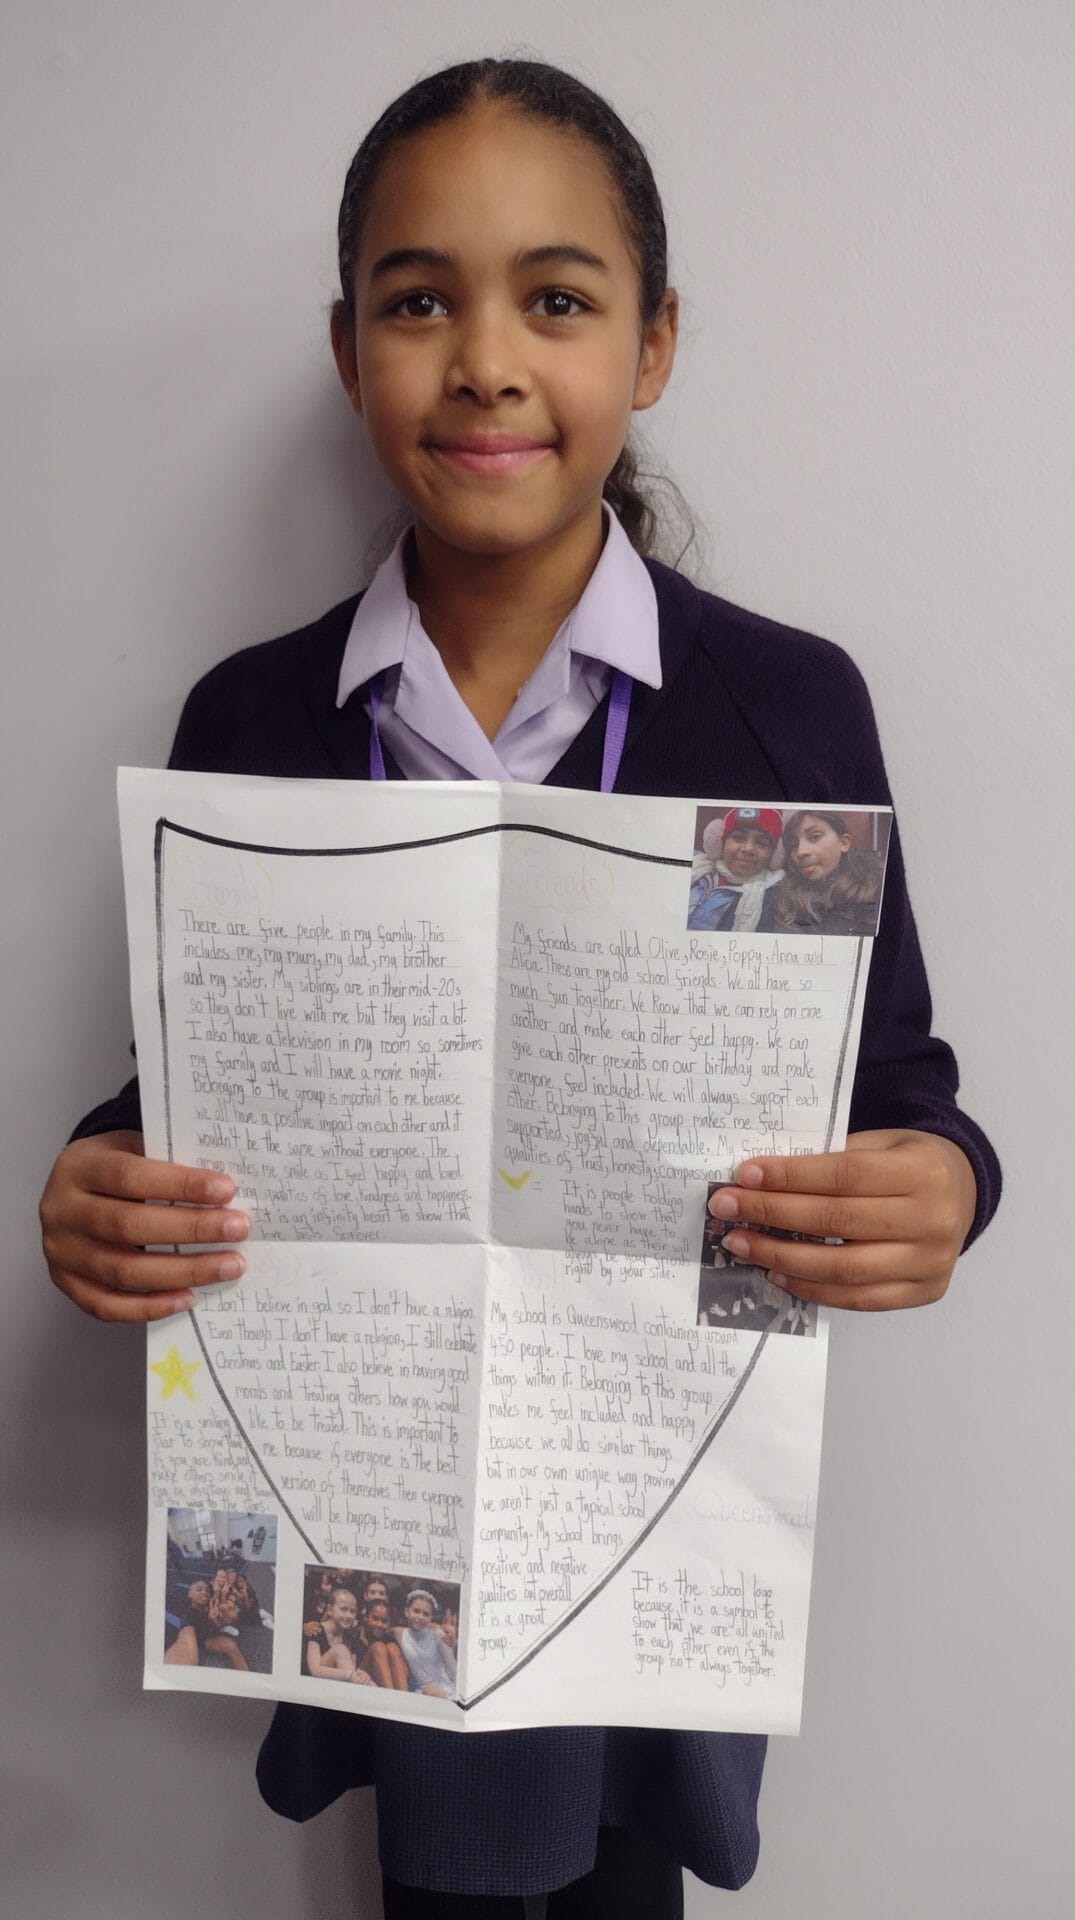 Family
There are five people in my family. This
includes me, my mum, my dad, my brother
and my sister. My siblings are in their mid-20s
so they don't live with me but they visit a lot.
I also have a television in my room so sometimes
my family and I will have a movie night.
Belonging to the group is important to me because
we all have a positive impact on each other and it
wouldn't be the same without everyone. The
group makes me smile as I feel happy and loved.
bring qualities of love, kindness and happiness.
It is an infinity heart to show that
love lasts forever.
Friends
My friends are called Olive, Rosie, Poppy, Anna and
Alicia. These are my old school friends. We all have so
much fun together. We know that we can rely on one
another and make each other feel happy. We can
give each other presents on our birthday and make
everyone feel included. We will always support each
other. Belonging to this group makes me feel
supported, joyful and dependable. My friends bring
qualities of trust, honesty, compassion
=
It is people holding
hands to show that
you never have to
be alone as their will
always be your friends
right by your side.
I don't believe in god so I don't have a religion.
Even though I don't have a religion, I still celebrate
Christmas and Easter. I also believe in having good
morals and treating others how you would
like to be treated. This is important to
me because if everyone is the best
version of themselves then everyone
will be happy. Everyone should
show love, respect and integrity.
It is a smiling
star to show that
if you are kind and
make others smile, it
can be infectious and
all the way to the stars.
My school is Queenswood containing around
450 people. I love my school and all the
things within it. Belonging to this group
makes me feel included and happy
because we all do similar things
but in our own unique way proving
we aren't just a typical school
community. My school brings
positive and negative
qualities but overall
it is a great
group.
Queenswood
It is the school logo
because it is a symbol to
show that we are all united
to each other even if the
group isn't always together.